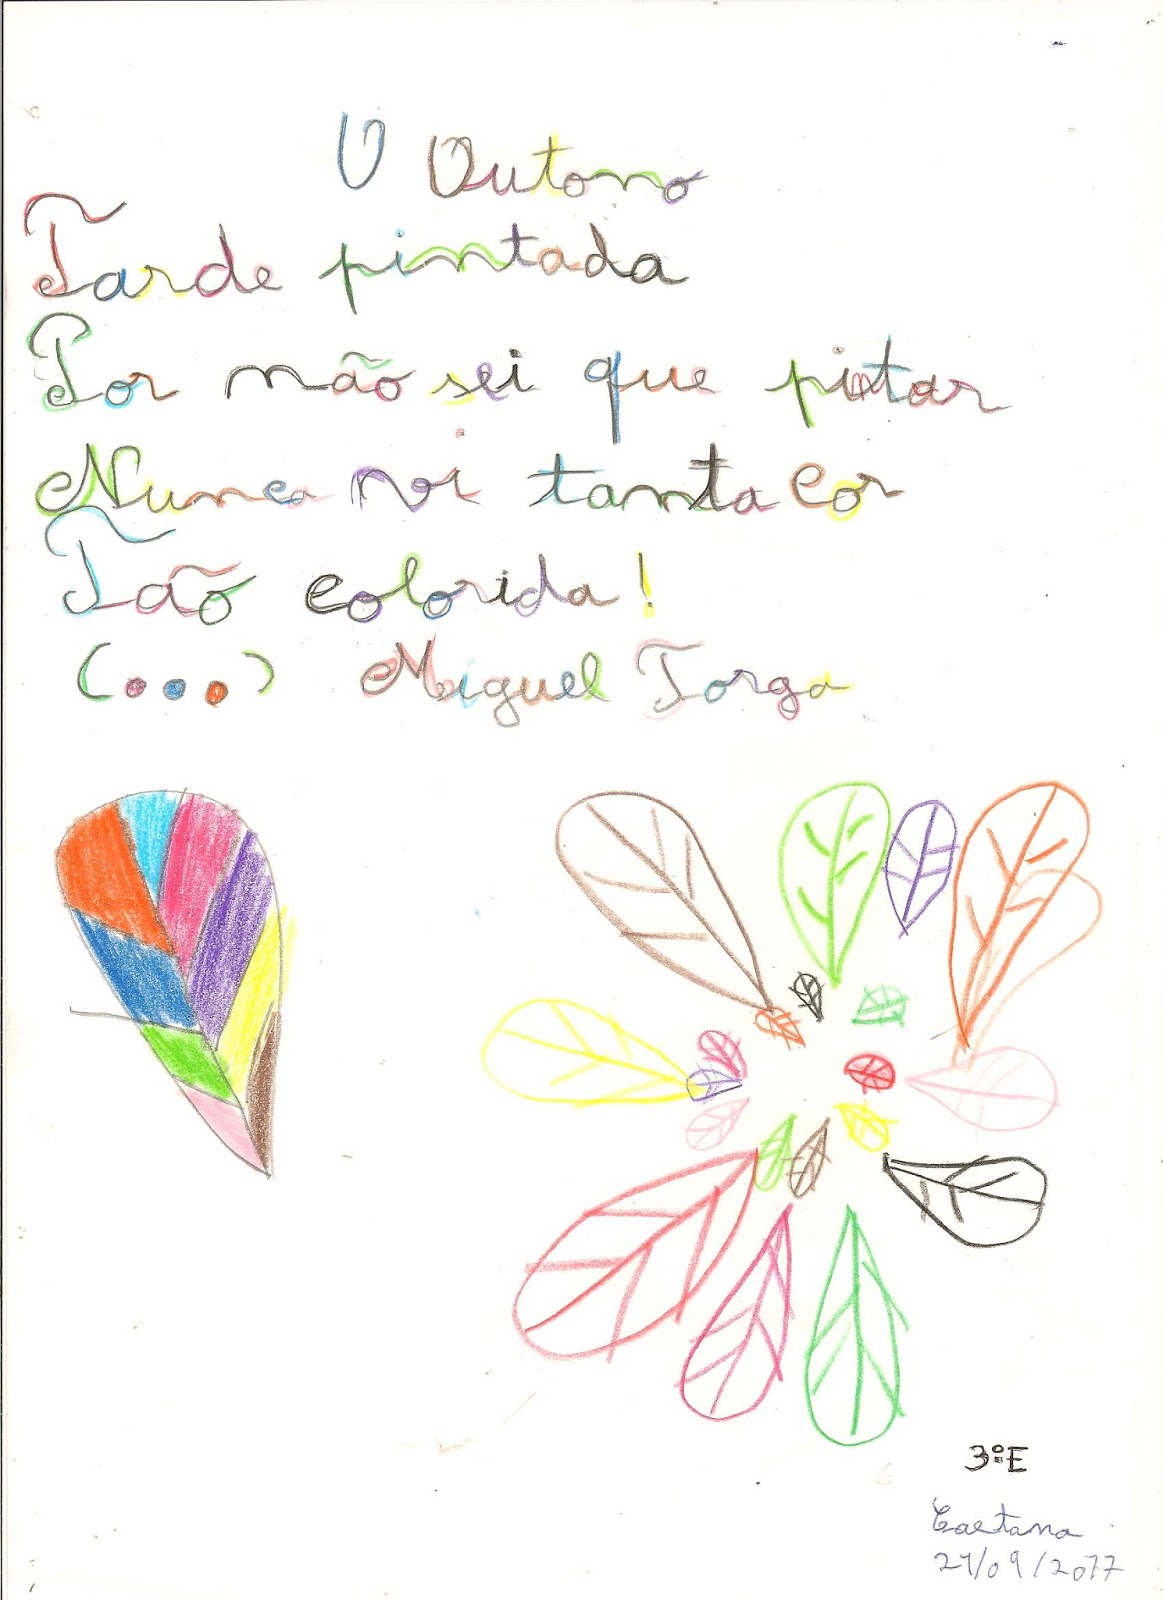 O Outono
Tarde pintada
Por não sei que pintar
Nunca vi tanta cor
Tão colorida!
(...) Miguel Torga
3ºE
Caetana
27/09/2017